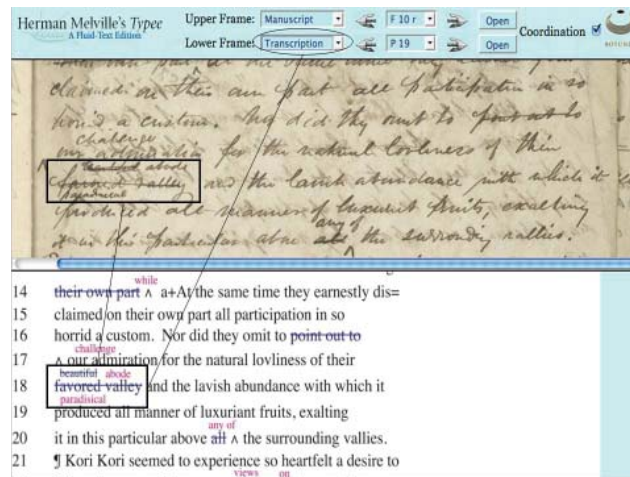 Herman Melville's Typee
A Fluid-Text Edition
Upper Frame: Manuscript F 10 r Open
Lower Frame: Transcription P 19 Open
Coordination
claimed on their own part all participation in so
horrid a custom. Nor did they omit to point out to
challenge
our admiration for the natural lovliness of their
beautiful abode
favored valley and the lavish abundance with which it
paradisical
produced all manner of luxuriant fruits, exalting
any of
it in this particular above all the surrounding vallies.
while
14 their own part ^ a+At the same time they earnestly dis=
15 claimed on their own part all participation in so
16 horrid a custom. Nor did they omit to point out to
challenge
17 ^ our admiration for the natural lovliness of their
beautiful abode
18 favored valley and the lavish abundance with which it
paradisical
19 produced all manner of luxuriant fruits, exalting
any of
20 it in this particular above all ^ the surrounding vallies.
21 ¶ Kori Kori seemed to experience so heartfelt a desire to
views on